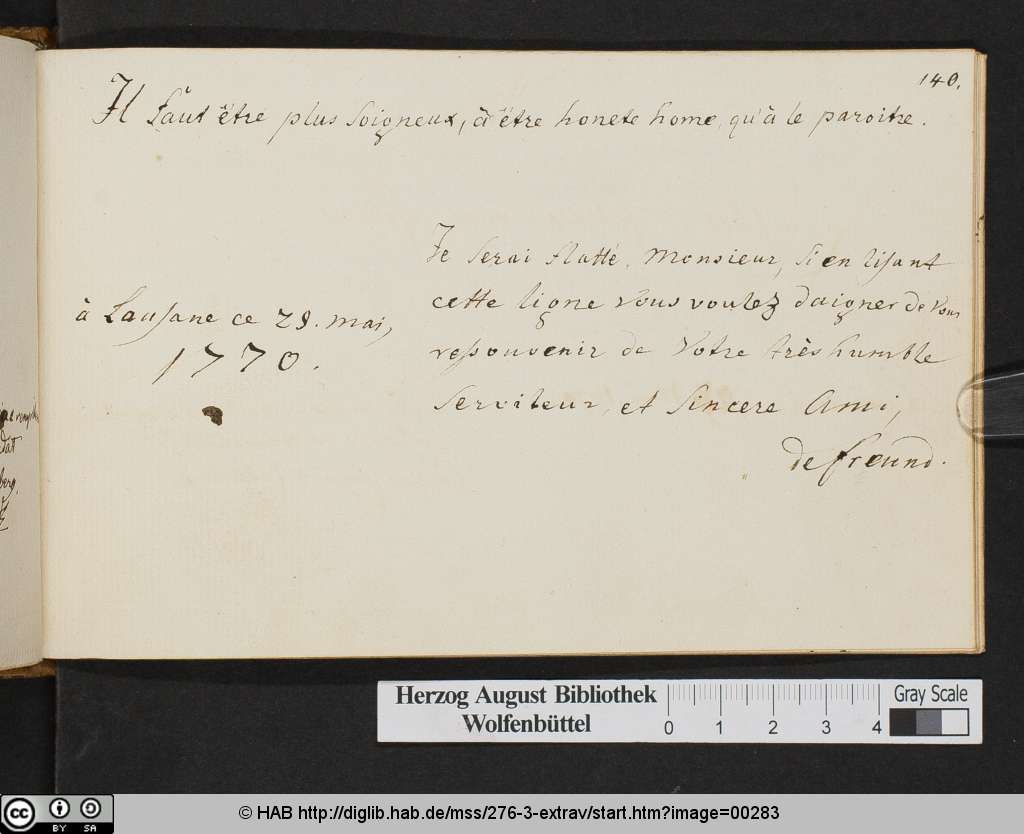 140.
Il faut être plus soigneux, à être honete home, qu'à le paroitre.
Je serai flatté, Monsieur, si en lisant
cette ligne vous voulez daigner de vous
ressouvenir de Votre très humble
serviteur, et sincere Ami,
de freund.
à Lausane ce 29. mai,
1770.
dat
berg.
Herzog August Bibliothek
Wolfenbüttel
0 1 2 3 4
Gray Scale
cc BY SA
© HAB http://diglib.hab.de/mss/276-3-extrav/start.htm?image=00283